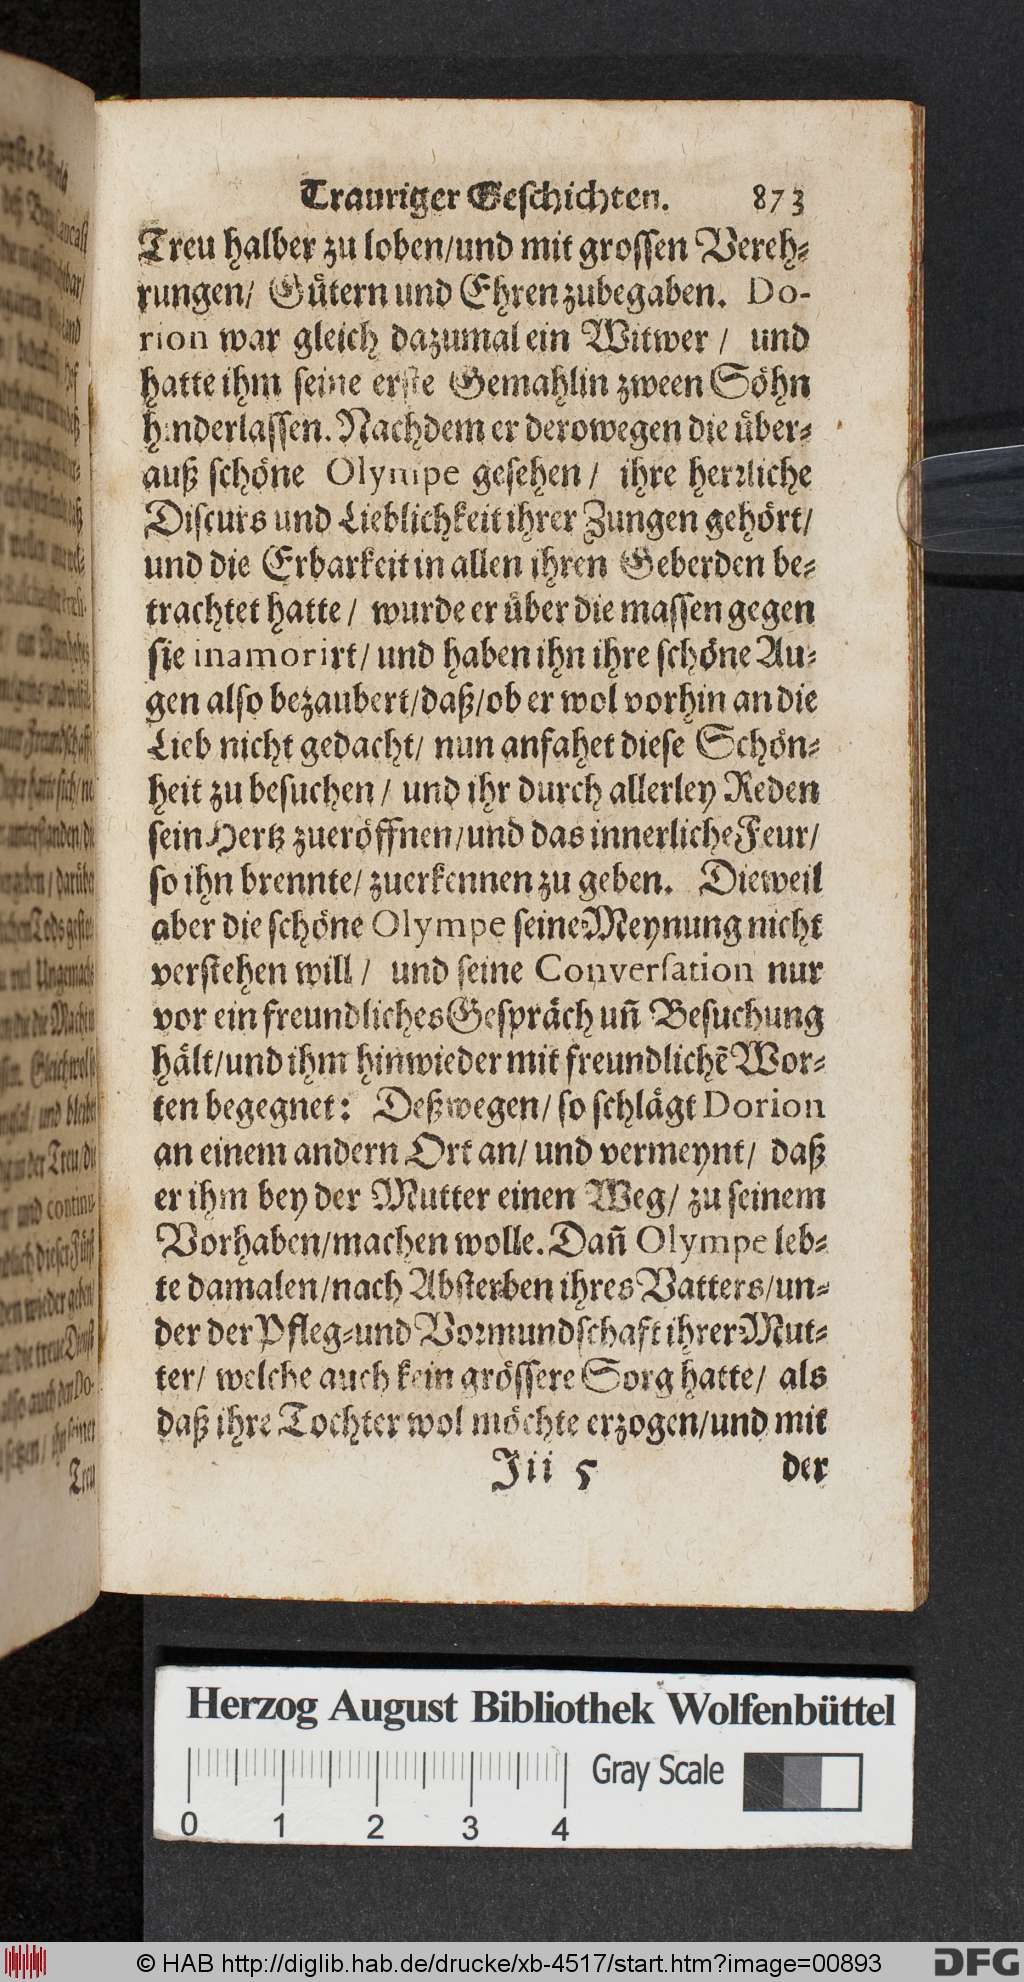 Trauriger Geschichten. 873
Treu halber zu loben/und mit grossen Vereh-
rungen/ Gütern und Ehren zubegaben. Do-
rion war gleich dazumal ein Witwer / und
hatte ihm seine erste Gemahlin zween Söhn
hinderlassen. Nachdem er derowegen die über-
auß schöne Olympe gesehen / ihre herzliche
Discurs und Lieblichkeit ihrer Zungen gehört/
und die Erbarkeit in allen ihren Geberden be-
trachtet hatte / wurde er über die massen gegen
sie inamorirt/ und haben ihn ihre schöne Au-
gen also bezaubert/daß/ob er wol vorhin an die
Lieb nicht gedacht/ nun anfahet diese Schön-
heit zu besuchen / und ihr durch allerley Reden
sein Hertz zueröffnen/und das innerliche Feur/
so ihn brennte/ zuerkennen zu geben. Dieweil
aber die schöne Olympe seine Meynung nicht
verstehen will / und seine Conversation nur
vor ein freundliches Gespräch uñ Besuchung
hält/und ihm hinwieder mit freundlichẽ Wor-
ten begegnet: Deßwegen/ so schlägt Dorion
an einem andern Ort an/ und vermeynt/ daß
er ihm bey der Mutter einen Weg/ zu seinem
Vorhaben/machen wolle. Dañ Olympe leb-
te damalen/nach Absterben ihres Vatters/un-
der der Pfleg-und Vormundschaft ihrer Mut-
ter/ welche auch kein grössere Sorg hatte/ als
daß ihre Tochter wol möchte erzogen/und mit
Jii 5 der
Herzog August Bibliothek Wolfenbüttel
Gray Scale
0 1 2 3 4
© HAB http://diglib.hab.de/drucke/xb-4517/start.htm?image=00893
DFG